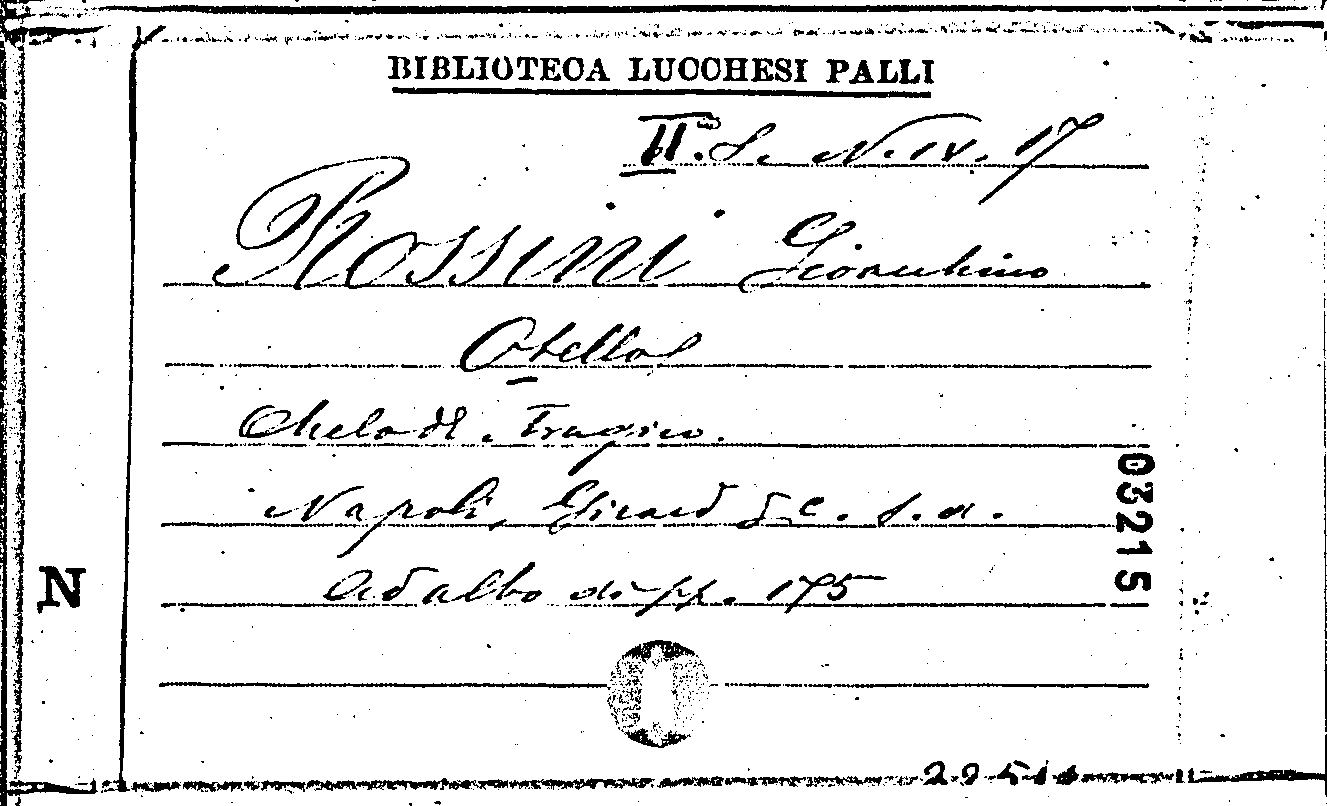 BIBLIOTECA LUCCHESI PALLI
II. S. N. IV. 17
ROSSINI Gioacchino
Otello
Melodr. Tragico.
Napoli, Girard & C. s. a.
Ad albo di pp. 175
03215
N